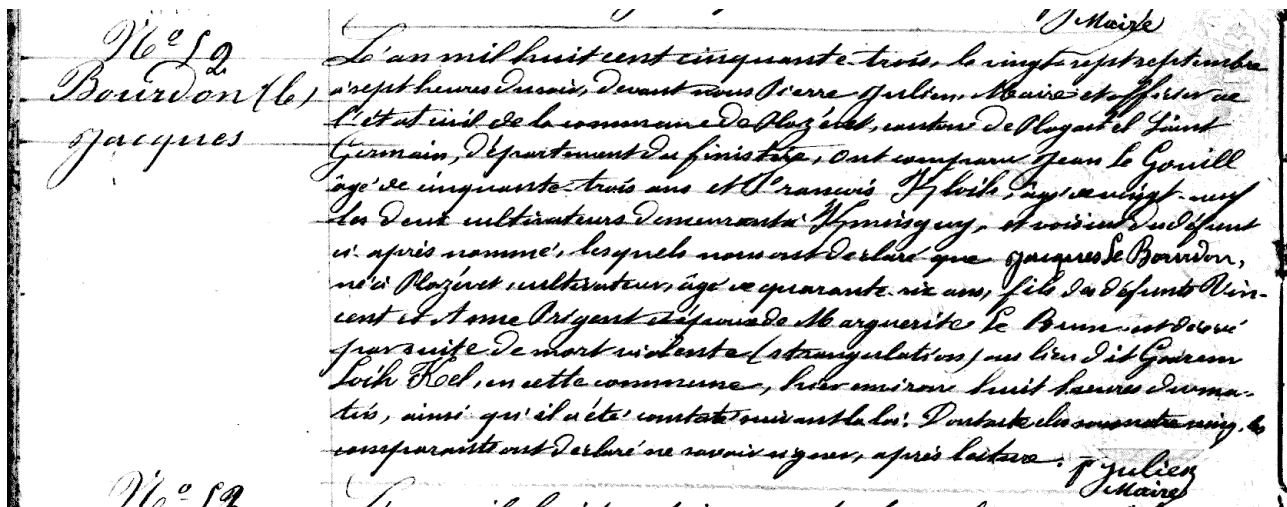 Maire
N.º 52
Bourdon (le)
Jacques
L'an mil huit cent cinquante-trois, le vingt sept septembre
à sept heures du soir, devant nous Pierre Julien, Maire et officier de
l'état civil de la commune de Plozévet, canton de Plogastel Saint
Germain, département du finistère, ont comparu Jean Le Gouill
âgé de cinquante-trois ans et François, âgé de vingt-neuf
les deux cultivateurs demeurant à, et voisins du défunt
ci-après nommé, lesquels nous ont déclaré que Jacques Le Bourdon,
né à Plozévet, cultivateur, âgé de quarante-six ans, fils des défunts Vin-
cent et Anne Prigent et époux de Marguerite Le Brun est décédé
par suite de mort violente (strangulation) au lieu dit Goarem
en cette commune, hier environ huit heures du ma-
tin, ainsi qu'il a été constaté suivant la loi. Dont acte sous notre seing, les
comparants ont déclaré ne savoir signer, après lecture.
P Julien
Maire